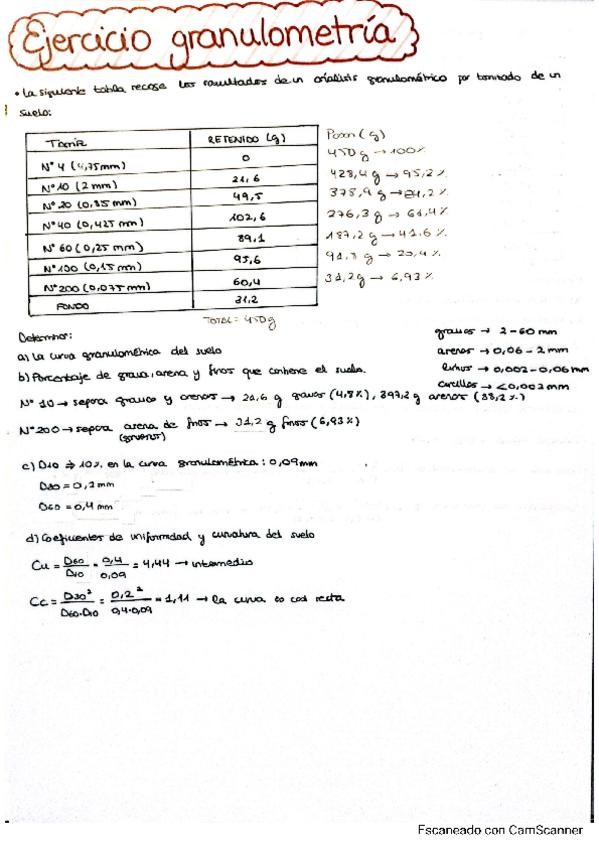 Ejercicio granulometría
• La siguiente tabla recoge los resultados de un análisis granulométrico por tamizado de un
suelo:
Tamiz RETENIDO (g) Pasan (g)
Nº 4 (4,75mm) 0 450 g → 100%
Nº 10 (2 mm) 21,6 428,4 g → 95,2 %
Nº 20 (0,85 mm) 49,5 378,9 g → 84,2 %
Nº 40 (0,425 mm) 102,6 276,3 g → 61,4 %
Nº 60 (0,25 mm) 89,1 187,2 g → 41,6 %
Nº 100 (0,15 mm) 95,6 91,3 g → 20,4 %
Nº 200 (0,075 mm) 60,4 31,2 g → 6,93 %
FONDO 31,2
TOTAL = 450g
Determinar:
a) La curva granulométrica del suelo
b) Porcentaje de grava, arena y finos que contiene el suelo.
gravas → 2-60 mm
arenas → 0,06 - 2mm
limos → 0,002-0,06mm
arcillas → <0,002 mm
Nº 10 → separa gravas y arenas → 21,6 g gravas (4,8%), 397,2 g arenas (88,2%)
Nº 200 → separa arena de finos → 31,2 g finos (6,93%)
(gruesos)
c) D10 ⇒ 10% en la curva granulométrica: 0,09mm
D30 = 0,2mm
D60 = 0,4 mm
d) Coeficientes de uniformidad y curvatura del suelo
Cu = D60/D10 = 0,4/0,09 = 4,44 → intermedio
Cc = D30²/D60·D10 = 0,2²/0,4·0,09 = 1,11 → la curva es casi recta
Escaneado con CamScanner